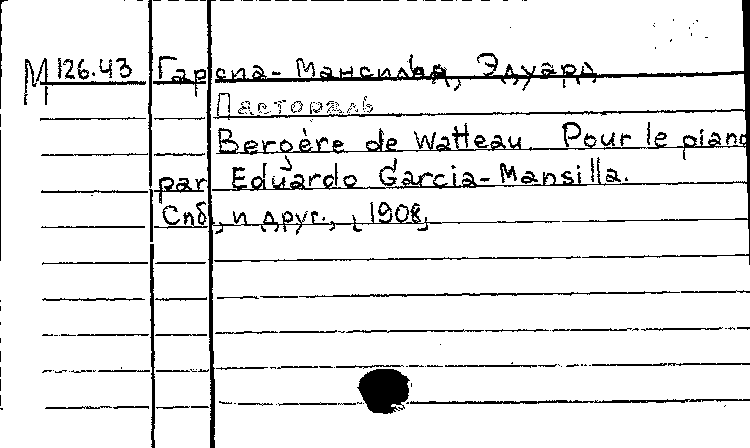 М 126.43 Гарсиа-Мансилья, Эдуард
Пастораль
Bergère de Watteau. Pour le piano
par Eduardo Garcia-Mansilla.
Спб., и друг., [1908]